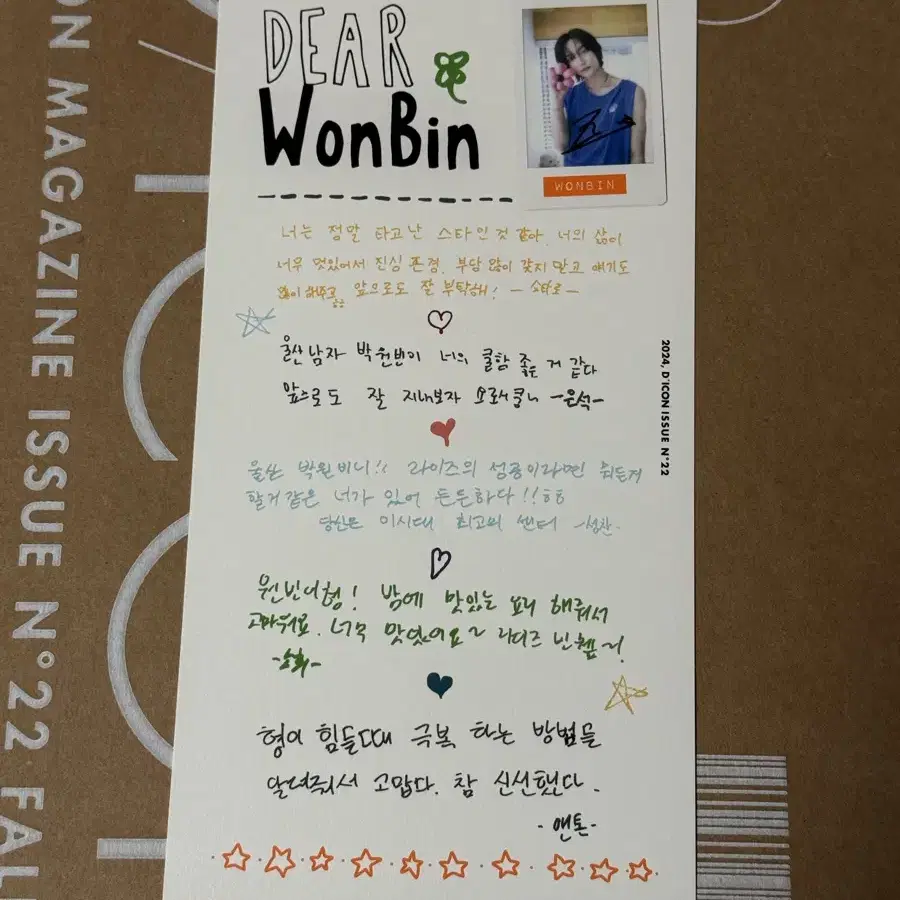 DEAR
WonBin
WONBIN
너는 정말 타고난 스타인것 같아. 너의 삶이
너무 멋있어서 진심 존경. 부담 많이 갖지 말고 얘기도
많이 해주고 앞으로도 잘 부탁해! - 쇼타로 -
울산남자 박원빈이 너의 쿨함 좋은 거 같다
앞으로도 잘 지내보자 -은석-
울산 박원비니!! 라이즈의 성공이라면
할거같은 너가 있어 든든하다!!ㅎㅎ
당신은 이시대 최고의 센터 -성찬-
원빈이형! 밤에 맛있는 요리 해줘서
고마워요. 너무 맛있어요~
-소희-
형이 힘들때 극복 하는 방법들
알려줘서 고맙다. 참 신선했다.
- 앤톤 -
2024, D'ICON ISSUE N°22
ON MAGAZINE ISSUE N°22 FAL